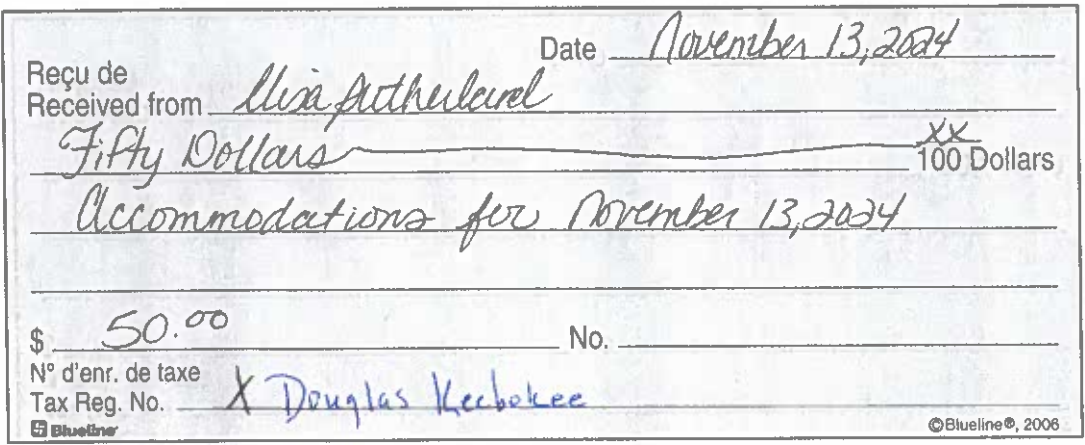 Date November 13, 2024
Reçu de
Received from Sutherland
Fifty Dollars xx
100 Dollars
Accommodations for November 13, 2024
$ 50.00 No.
N° d'enr. de taxe
Tax Reg. No. X Douglas Keebokee
Blueline ©Blueline®, 2006